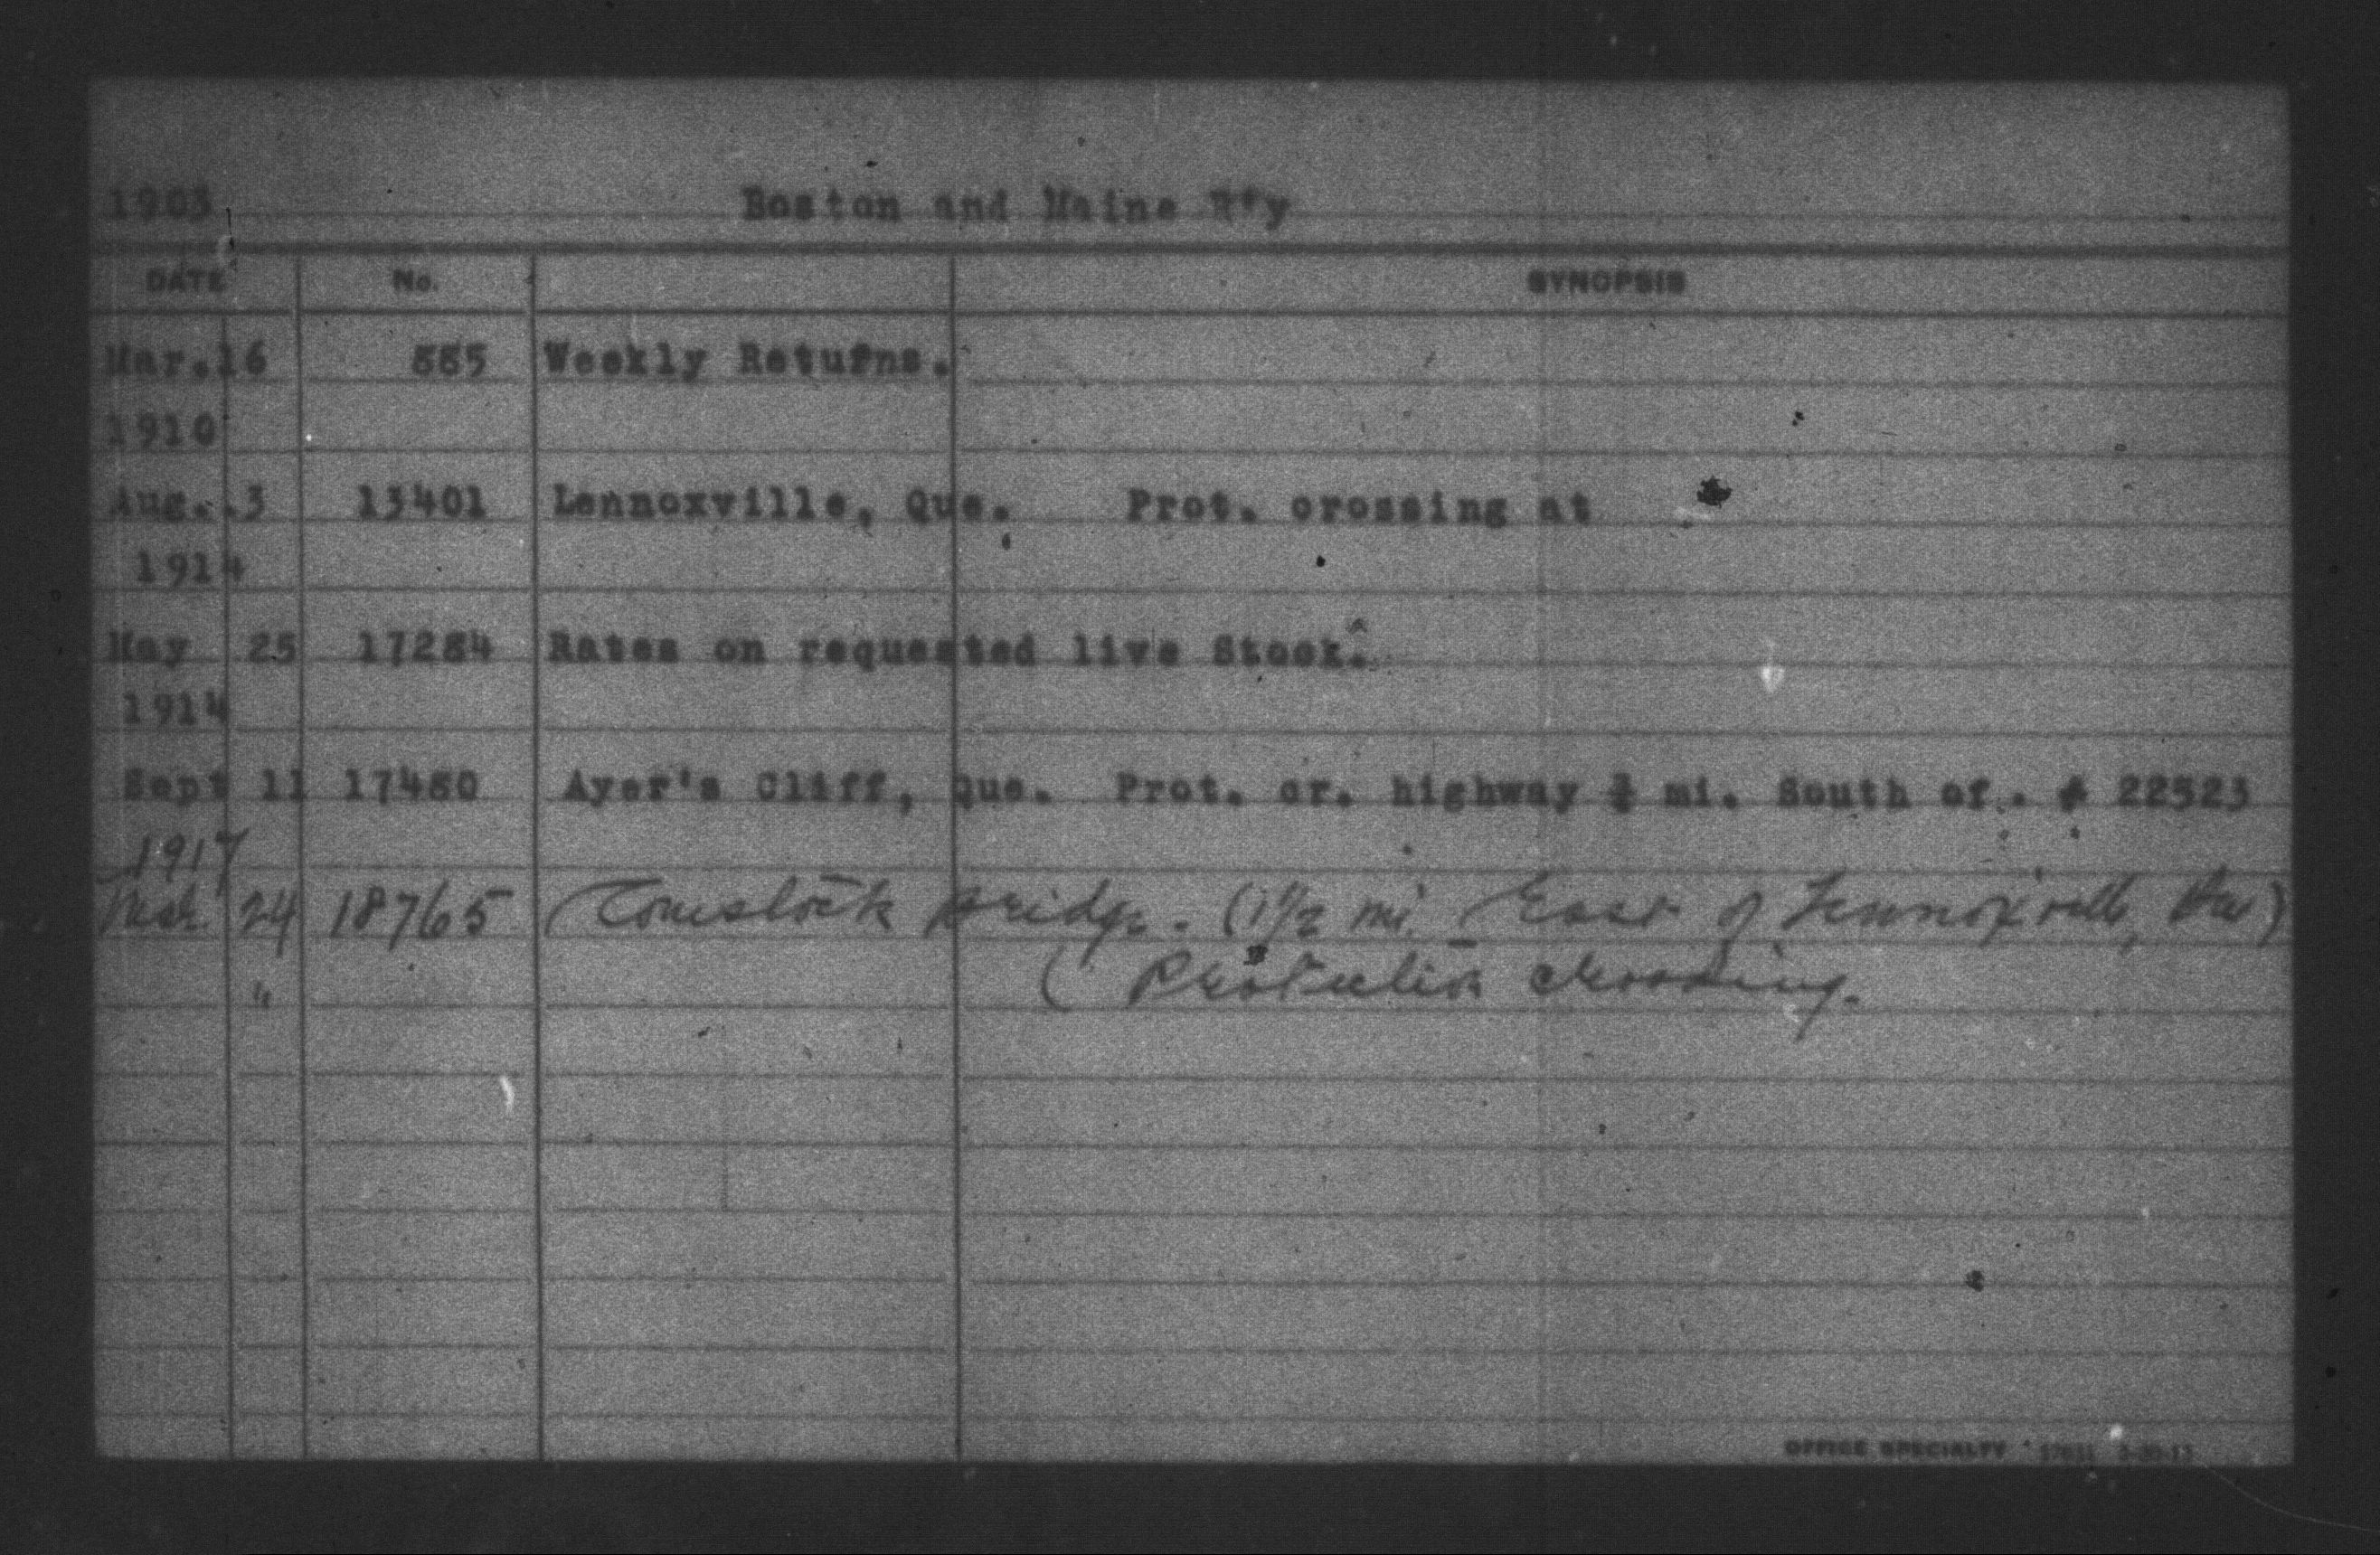 1903 Boston and Maine R'y
DATE No. SYNOPSIS
Mar. 16 885 Weekly Returns.
1910
Aug. 3 13401 Lennoxville, Que. Prot. crossing at
1914
May 25 17284 Rates on requested live Stock.
1914
Sept 11 17480 Ayer's Cliff, Que. Prot. cr. highway ¾ mi. South of. # 22523
1917
Mar. 24 18765 (Comstock Bridge. (1½ mi. East of Lennoxville, Que)
" ( Protection crossing.
OFFICE SPECIALTY